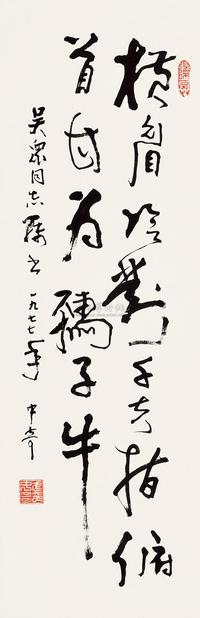 横眉冷对千夫指俯
首甘为孺子牛
吴众同志嘱书 一九七七年 中奇